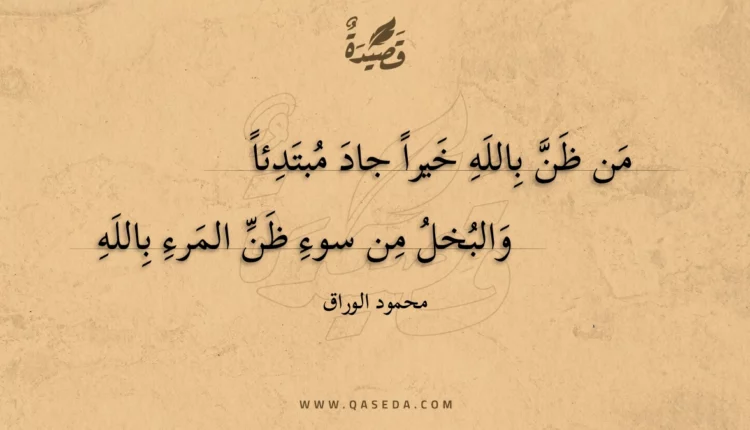 قَصِيدَةٌ
مَن ظَنَّ بِاللَهِ خَيراً جادَ مُبتَدِئاً
وَالبُخلُ مِن سوءِ ظَنِّ المَرءِ بِاللَهِ
محمود الوراق
WWW.QASEDA.COM